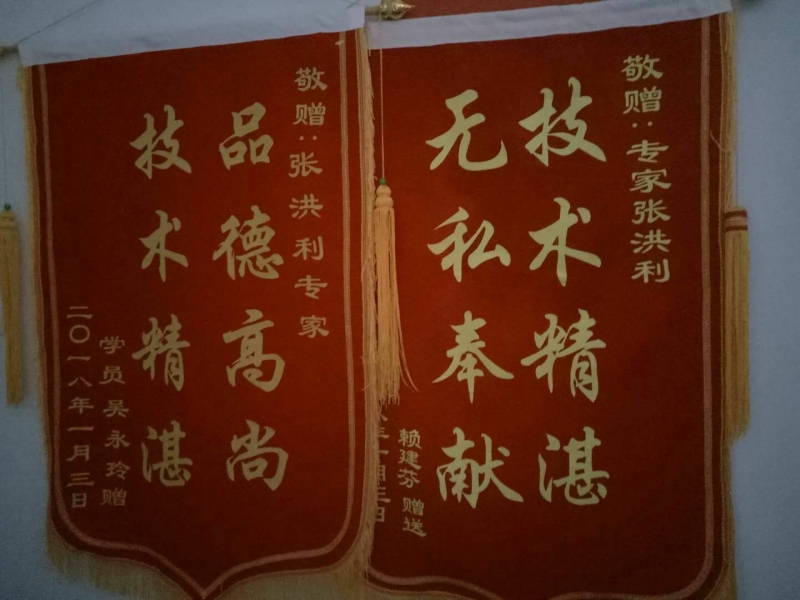 敬赠:张洪利专家
品德高尚
技术精湛
学员吴永玲赠
二〇一八年一月三日
敬赠:专家张洪利
技术精湛
无私奉献
赖建芬赠送
八年一月三日